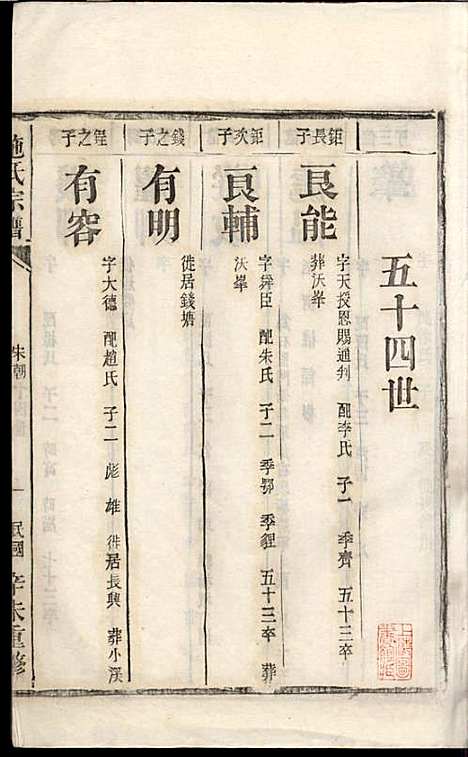 五十四世
鉅長子
良能
字天授恩賜通判 配李氏 子一 季齊 五十三卒
葬沃峯
鉅次子
良輔
字舜臣 配朱氏 子二 季鄂 季貍 五十三卒 葬
沃峯
錢之子
有明
徙居錢塘
鍟之子
有容
字大德 配趙氏 子二 彪 雄 徙居長興 葬小溪
施氏宗譜
一
民國 辛未重修